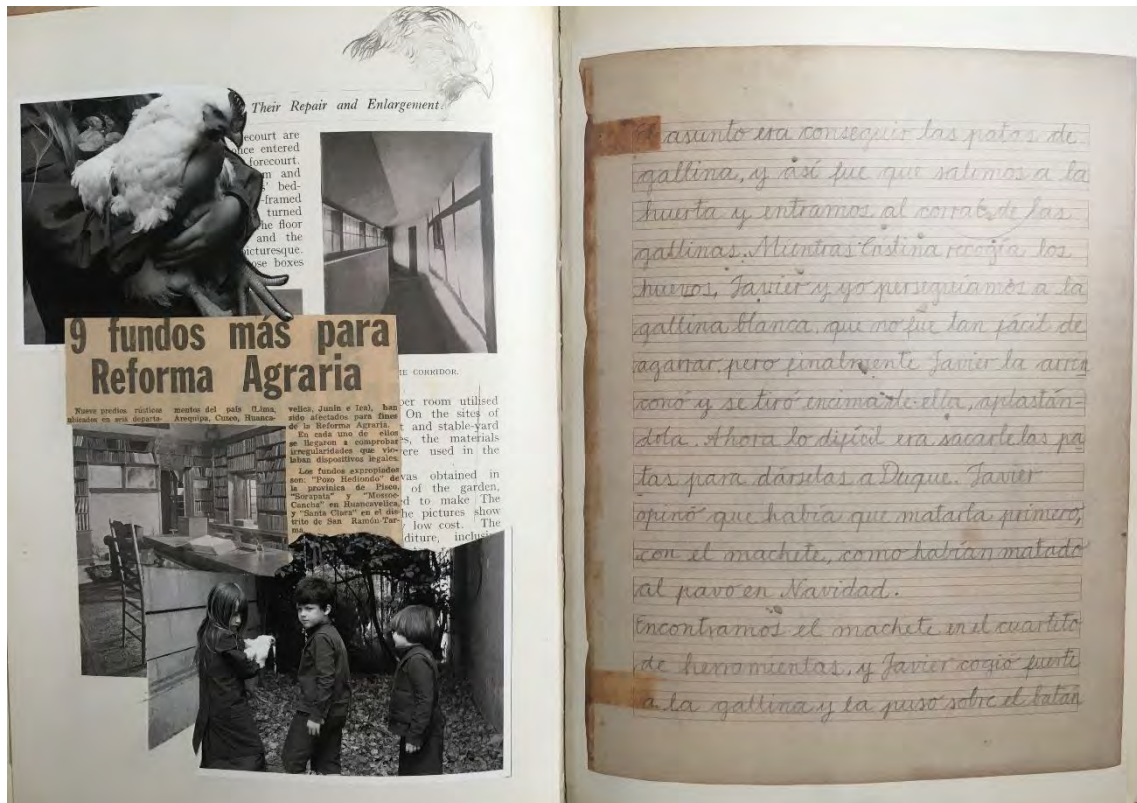 Their Repair and Enlargement.
ecourt are
once entered
forecourt.
m and
s' bed-
-framed
turned
he floor
and the
icturesque.
ose boxes
HE CORRIDOR.
9 fundos más para
Reforma Agraria
Nueve predios rústicos
ubicados en seis departa-
mentos del país (Lima,
Arequipa, Cusco, Huanca-
velica, Junín e Ica), han
sido afectados para fines
de la Reforma Agraria.
En cada uno de ellos
se llegaron a comprobar
irregularidades que vio-
laban dispositivos legales.
Los fundos expropiados
son: "Pozo Redondo" de
la provincia de Pisco,
"Sorapata" y "Mossoc-
Cancha" en Huancavelica,
y "Santa Clara" en el dis
trito de San Ramón-Tar-
ma.
per room utilised
On the sites of
t and stable-yard
s, the materials
ere used in the
was obtained in
of the garden,
d to make The
he pictures show
low cost. The
diture, inclusi
El asunto era conseguir las patas de
gallina, y así fue que salimos a la
huerta y entramos al corral de las
gallinas. Mientras Cristina recogía los
huevos, Javier y yo perseguíamos a la
gallina blanca, que no fue tan fácil de
agarrar, pero finalmente Javier la arrin
conó y se tiró encima de ella, aplastán-
dola. Ahora lo difícil era sacarle las pa
tas para dárselas a Duque. Javier
opinó que había que matarla primero,
con el machete, como habían matado
al pavo en Navidad.
Encontramos el machete en el cuartito
de herramientas, y Javier cogió fuerte
a la gallina y la puso sobre el batán